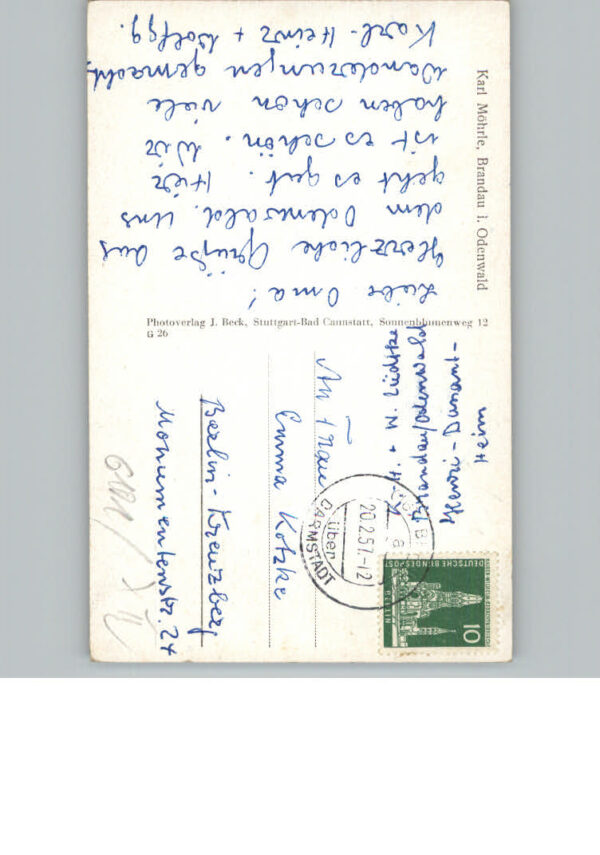 Liebe Oma!
Herzliche Grüße aus
dem Odenwald. Uns
geht es gut. Hier
ist es schön. Wir
haben schon viele
Wanderungen gemacht.
Karl-Heinz + Wolfgg.
Karl Möhrle, Brandau i. Odenwald
Photoverlag J. Beck, Stuttgart-Bad Cannstatt, Sonnenblumenweg 12
G 26
K.-H. + W. Lüdtke
Brandau/Odenwald
Henri-Dunant-
Heim
An Frau
Emma Kotzke
Berlin-Kreuzberg
Monumentenstr. 24
20.2.57.-12
über
DARMSTADT
DEUTSCHE BUNDESPOST
BERLIN
10